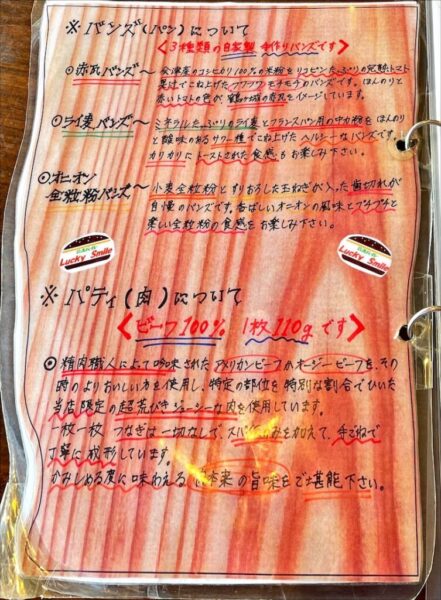 ※ バンズ(パン)について
<3種類の自家製 手作りバンズです>
◎赤瓦バンズ〜 会津産のコシヒカリ100%の米粉をリコピンたっぷりの完熟トマト
果汁でこね上げたフワフワモチモチのバンズです。ほんのりと
赤いトマトの色が鶴ヶ城の赤瓦をイメージしています。
◎ライ麦バンズ〜 ミネラルたっぷりのライ麦とフランスパン用の中力粉をほんのり
と酸味のあるサワー種でこね上げたヘルシーなバンズです。
カリカリにトーストされた食感をお楽しみ下さい。
◎オニオン
全粒粉バンズ〜 小麦全粒粉とすりおろした玉ねぎが入った歯切れが
自慢のバンズです。香ばしいオニオンの風味とプチプチと
楽しい全粒粉の食感をお楽しみ下さい。
Lucky Smile
Lucky Smile
※ パティ(肉)について
<ビーフ100% 1枚110gです>
◎精肉職人によって吟味されたアメリカンビーフかオージービーフを、その
時のよりおいしい方を使用し、特定の部位を特別な割合でひいた
当店限定の超荒びきジューシーな肉を使用しています。
一枚一枚 つなぎは一切なしで、スパイスのみを加えて、手ごねで
丁寧に成形しています。
かみしめる度に味わえる 本来の旨味をご堪能下さい。